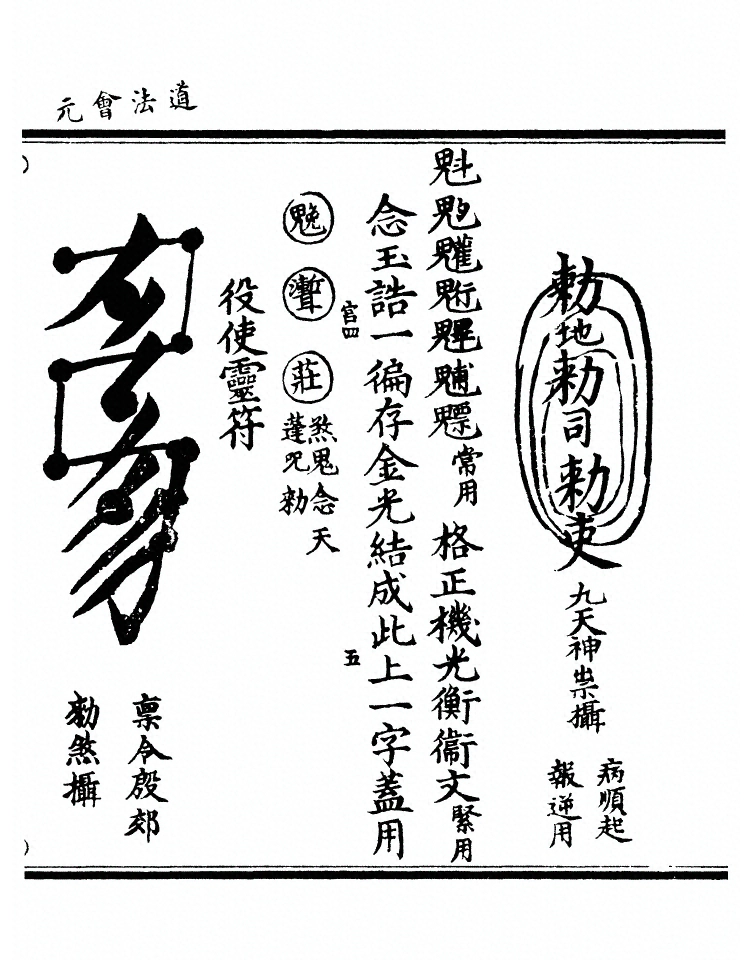 道法會元
勅地勅司勅吏
九天神祟攝
病順起
報逆用
魁魒常用
格正機光衡衞文緊用
念玉誥一徧存金光結成此上一字蓋用
宫四
五
莊
煞鬼念天
蓬咒勑
役使靈符
稟令殷郊
勑煞攝